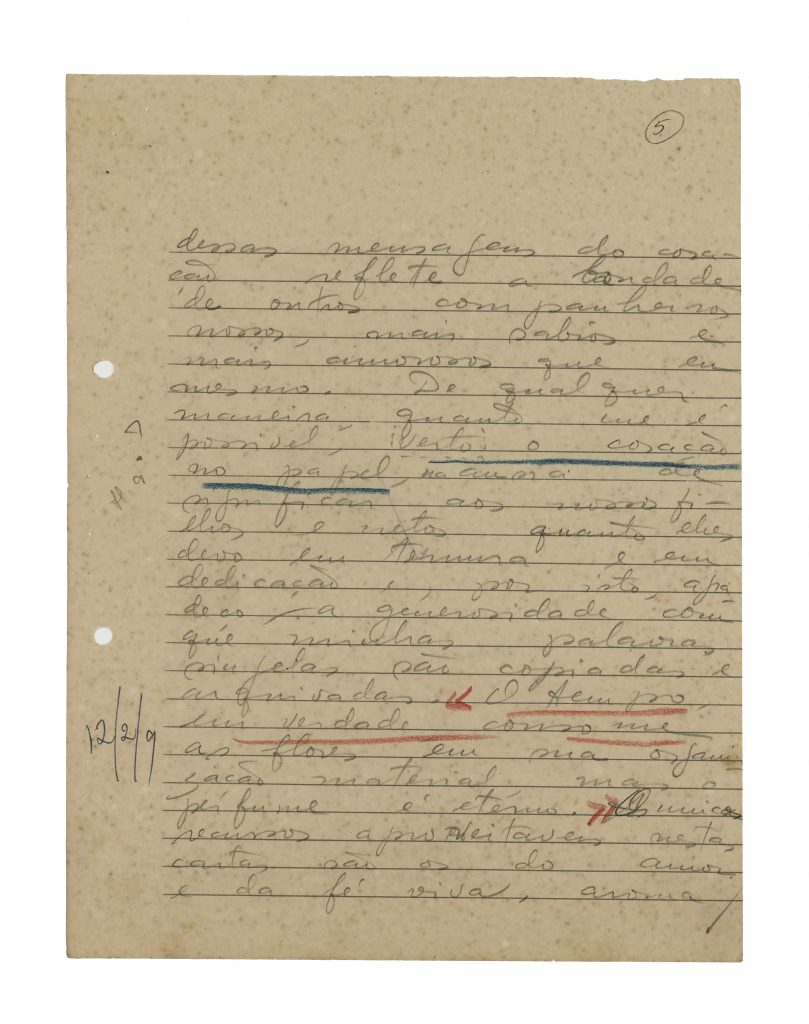 5
dessas mensagens do cora-
ção reflete a bondade
de outros companheiros
nossos, mais sabios e
mais amorosos que eu
mesmo. De qualquer
maneira, quanto me é
possivel, verto o coração
no papel, na ansia de
significar aos nossos fi-
lhos e netos quanto lhes
devo em ternura e em
dedicação e, por isto, agra
deço a generosidade com
que minhas palavras
singelas são copiadas e
arquivadas. « O tempo,
em verdade consome
as flores em sua organi-
zação material mas o
perfume é eterno. » Os unicos
recursos aproveitaveis nestas
cartas são os do amor
e da fé viva, aroma
12/2/9